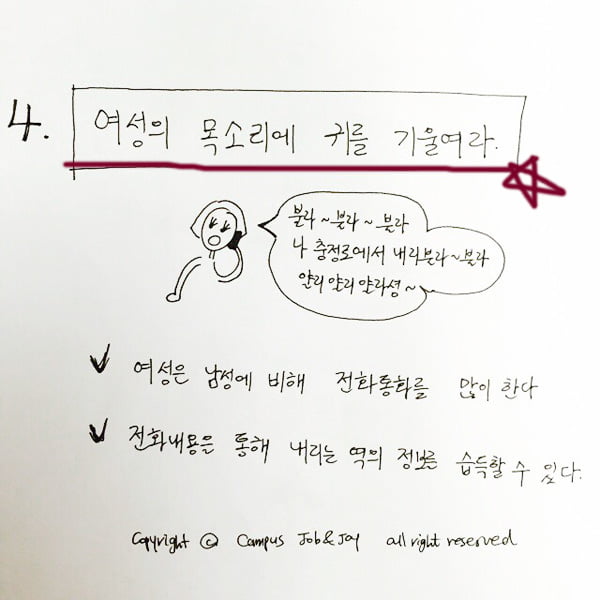 4. 여성의 목소리에 귀를 기울여라.
블라~블라~블라
나 충정로에서 내라블라~블라
얀리얀리얀라셩~
여성은 남성에 비해 전화통화를 많이 한다
전화내용은 통해 내리는 역의 정보를 습득할 수 있다.
Copyright ⓒ Campus Job&Joy all right reserved